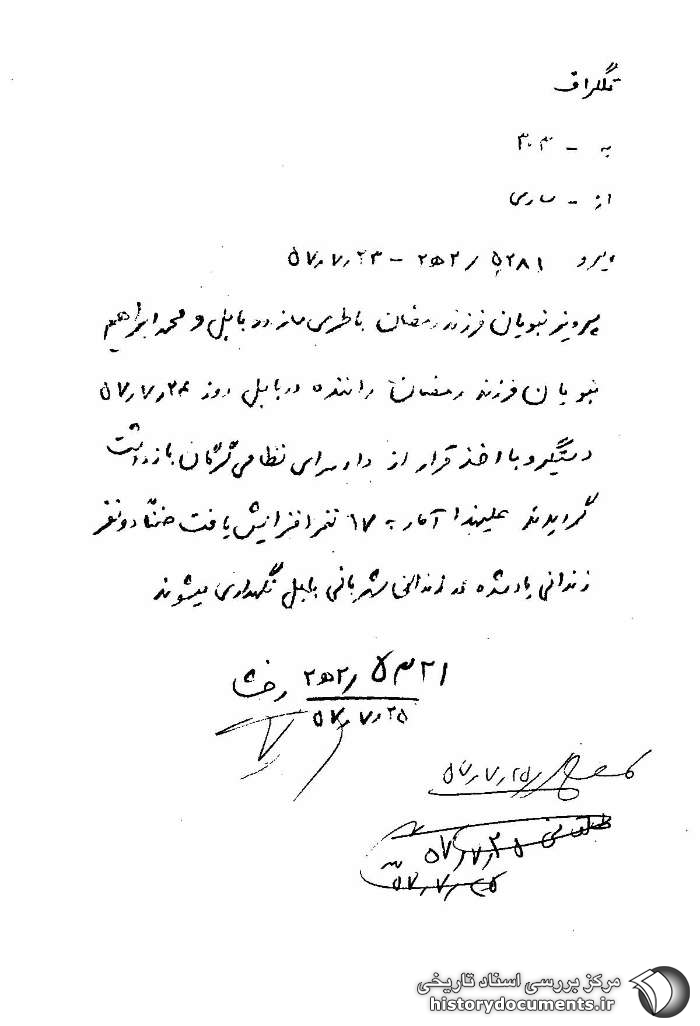 تلگراف
به - ۳۰۳
از - ساری
پیرو ۵۲۸۱ / ۲ﻫ۲ - ۲۳ر۷ر۵۷
پرویز نبویان فرزند رمضان باطری ساز در بابل و محمدابراهیم
نبویان فرزند رمضان راننده در بابل روز ۲۴ر۷ر۵۷
دستگیر و با اخذ قرار از دادسرای نظامی گرگان بازداشت
گردیدند علیهذا آمار به ۱۷ نفر افزایش یافت ضمناً دو نفر
زندانی یاد شده در زندان شهربانی بابل نگهداری میشوند
۵۳۲۱ / ۲ﻫ۲
۲۵ر۷ر۵۷
۲۵ر۷ر۵۷
۲۵ر۷ر۵۷
۵۷ر۷ر
مرکز بررسی اسناد تاریخی
historydocuments.ir